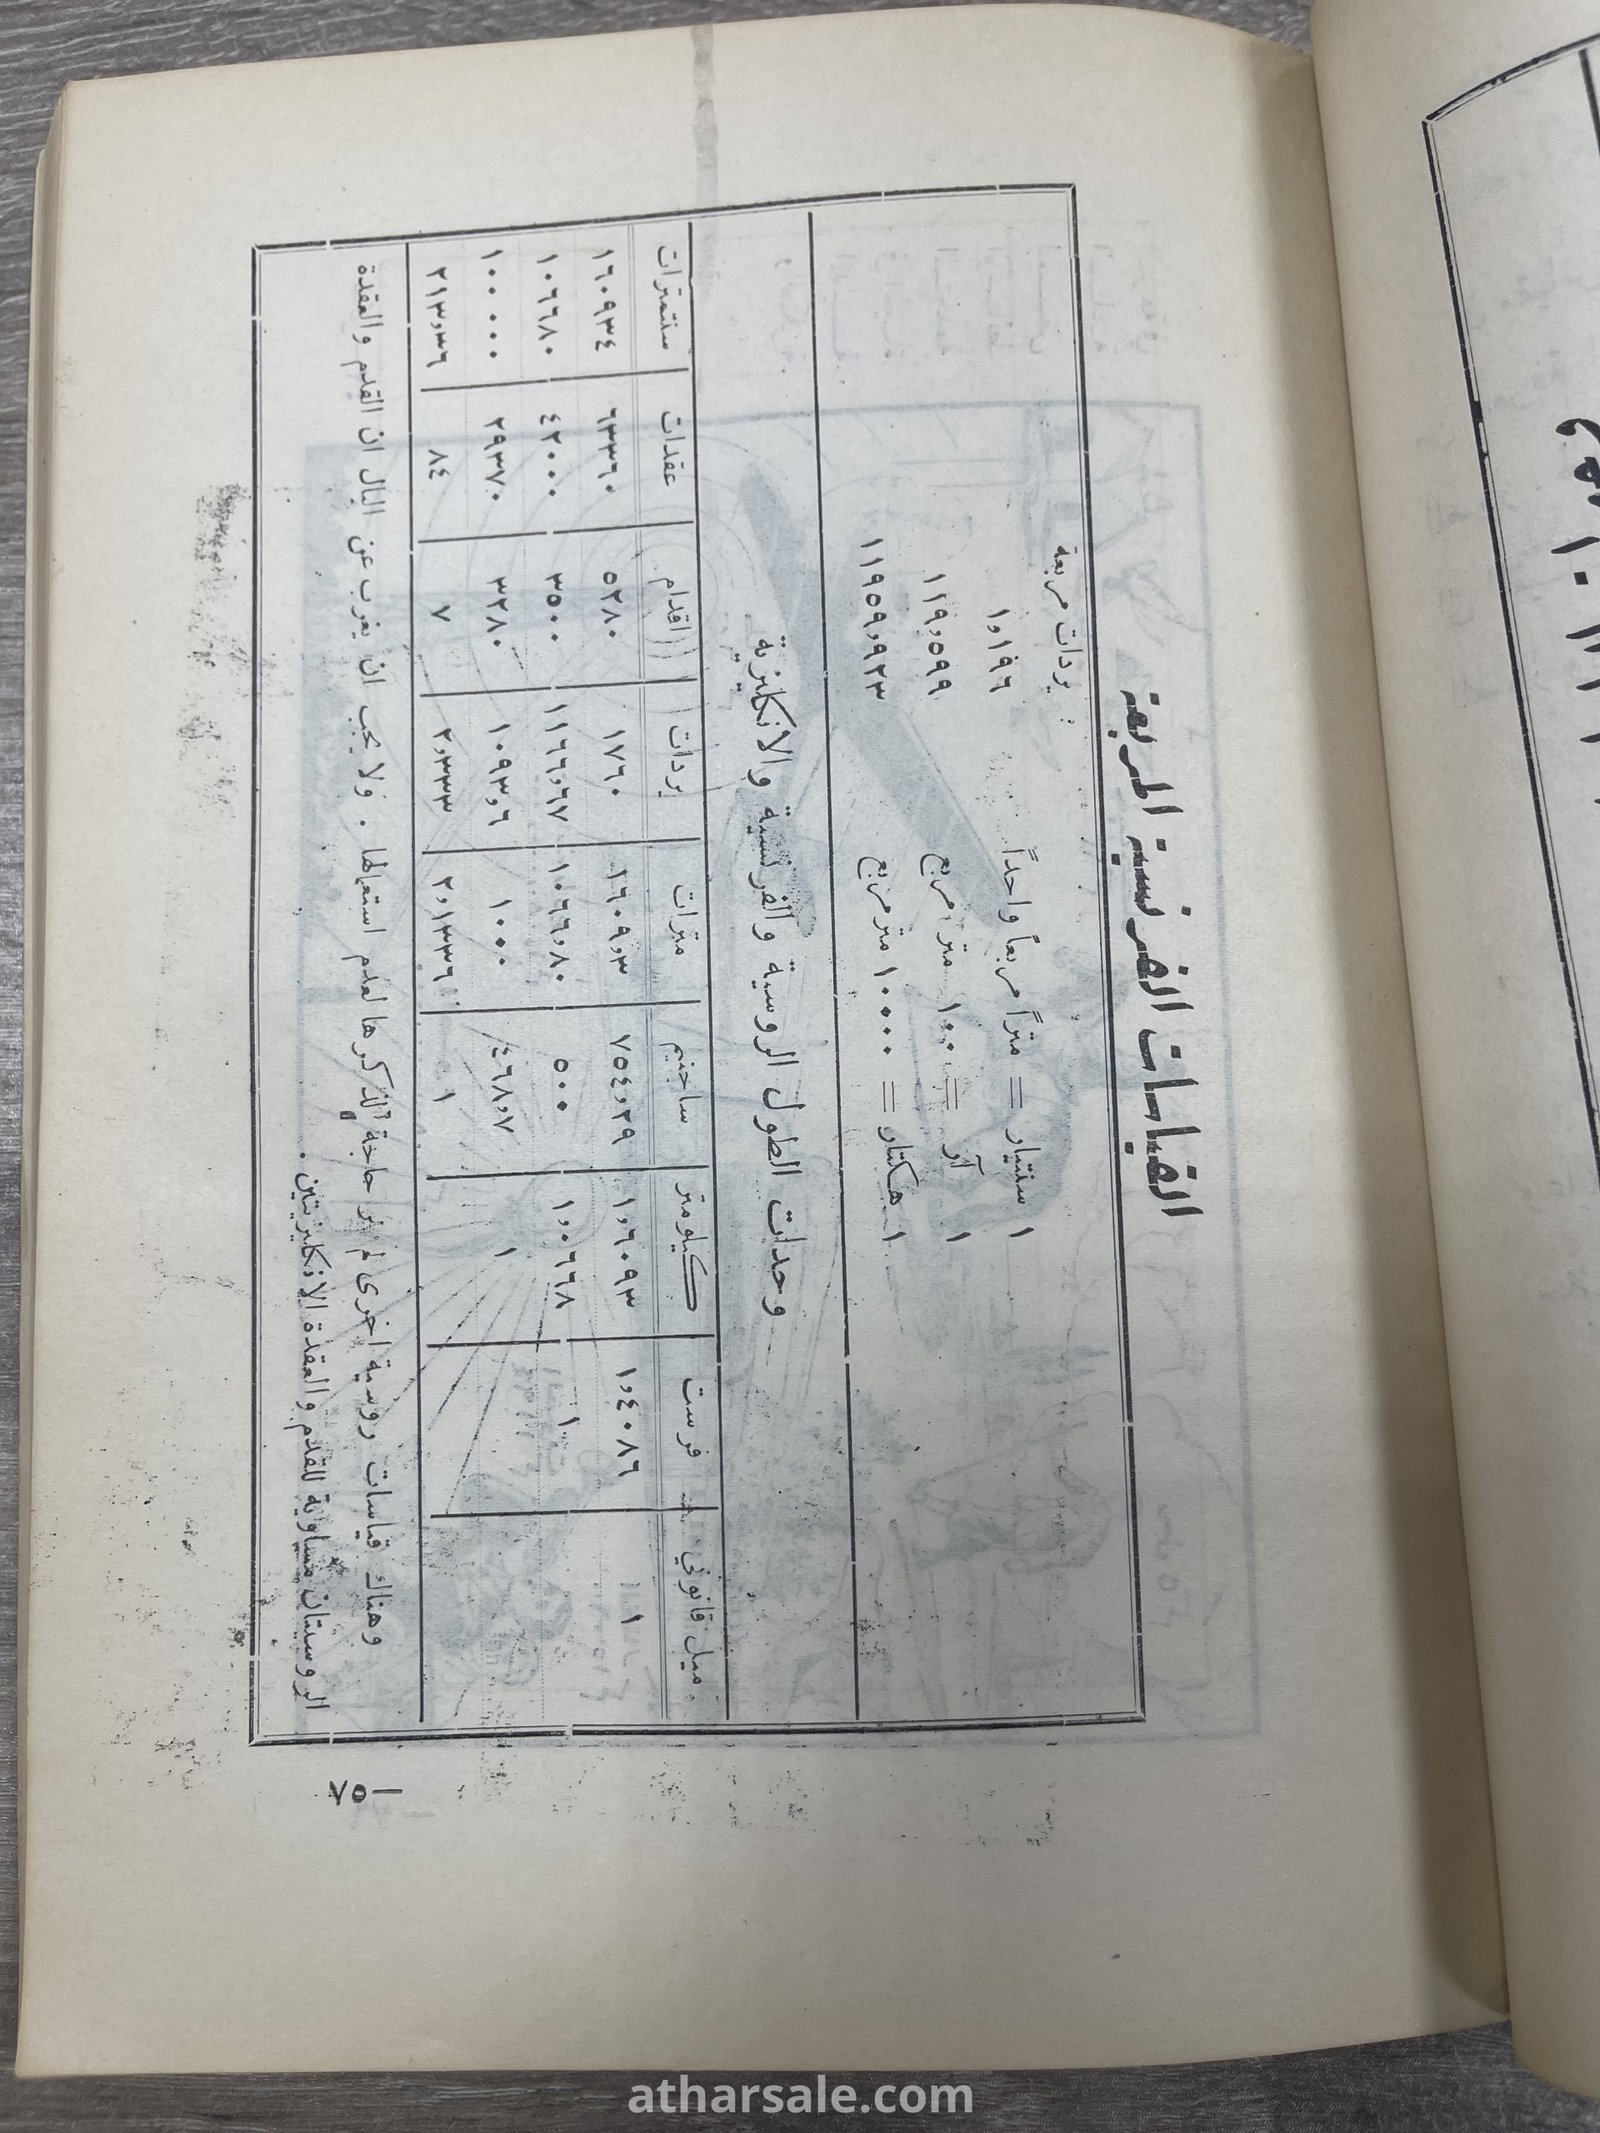 القياسات الفرنسية المربعة
يردات مربعة
١ سنتيار = متراً مربعاً واحداً ١٫١٩٦
١ آر = ١٠٠ متر مربع ١١٩٫٥٩٩
١ هكتار = ١٠٠٠٠ متر مربع ١١٩٥٩٫٩٣٣
وحدات الطول الروسية والفرنسية والانكليزية
ميل قانوني فرست كيلومتر ساجنيم مترات يردات اقدام عقدات سنتمترات
١ ١٫٤٠٨٦ ١٫٦٠٩٣ ٧٥٤٫٢٩ ١٦٠٩٫٣ ١٧٦٠ ٥٢٨٠ ٦٣٣٦٠ ١٦٠٩٣٤
١ ١٫٠٦٦٨ ٥٠٠ ١٠٦٦٫٨٠ ١١٦٦٫٦٧ ٣٥٠٠ ٤٢٠٠٠ ١٠٦٦٨٠
١ ٤٦٨٫٧ ١٠٠٠ ١٠٩٣٫٦ ٣٢٨٠ ٣٩٣٧٠ ١٠٠٠٠٠
١ ٢٫١٣٣٦ ٢٫٣٣٣ ٧ ٨٤ ٢١٣٫٣٦
وهناك قياسات روسية اخرى لم نر حاجة لذكرها لعدم استعمالها . ولا يجب ان يغرب عن البال ان القدم والعقدة
الروسيتان مساوية للقدم والعقدة الانكليزيتين .
—٧٥
atharsale.com